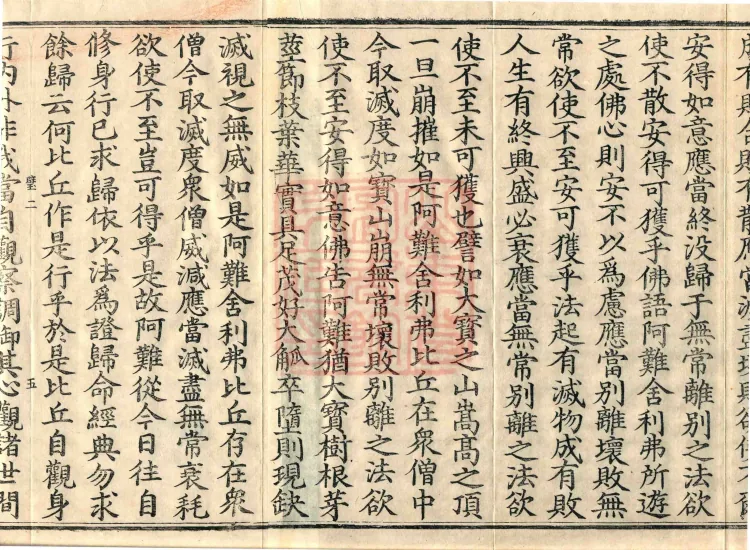 安得如意應當終没歸于無常離別之法欲
使不散安得可獲乎佛語阿難舍利弗所遊
之處佛心則安不以為慮應當別離壞敗無
常欲使不至安可獲乎法起有滅物成有敗
人生有終興盛必衰應當無常別離之法欲
使不至未可獲也譬如大寶之山嵩高之頂
一旦崩摧如是阿難舍利弗比丘在衆僧中
今取滅度如寶山崩無常壞敗別離之法欲
使不至安得如意佛告阿難猶大寶樹根芽
莖節枝葉華實具足茂好大觚卒墮則現缺
減視之無威如是阿難舍利弗比丘存在衆
僧今取滅度衆僧威減應當滅盡無常衰耗
欲使不至豈可得乎是故阿難從今日往自
修身行已求歸依以法為證歸命經典勿求
餘歸云何比丘作是行乎於是比丘自觀身
璧二 五
行内外非我當自觀察調御其心觀諸世間